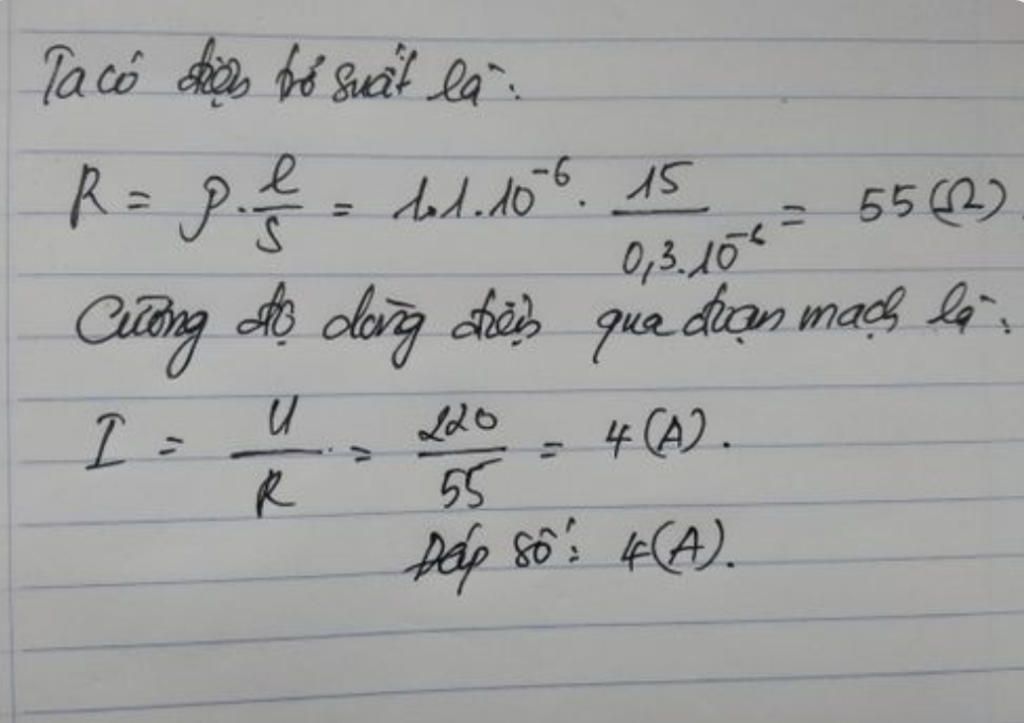 Ta có điện trở suất là:
R = ρ. l/S = 1.1.10⁻⁶. 15/0,3.10⁻⁶ = 55 (Ω)
Cường độ dòng điện qua đoạn mạch là:
I = U/R = 220/55 = 4 (A).
Đáp số: 4 (A).